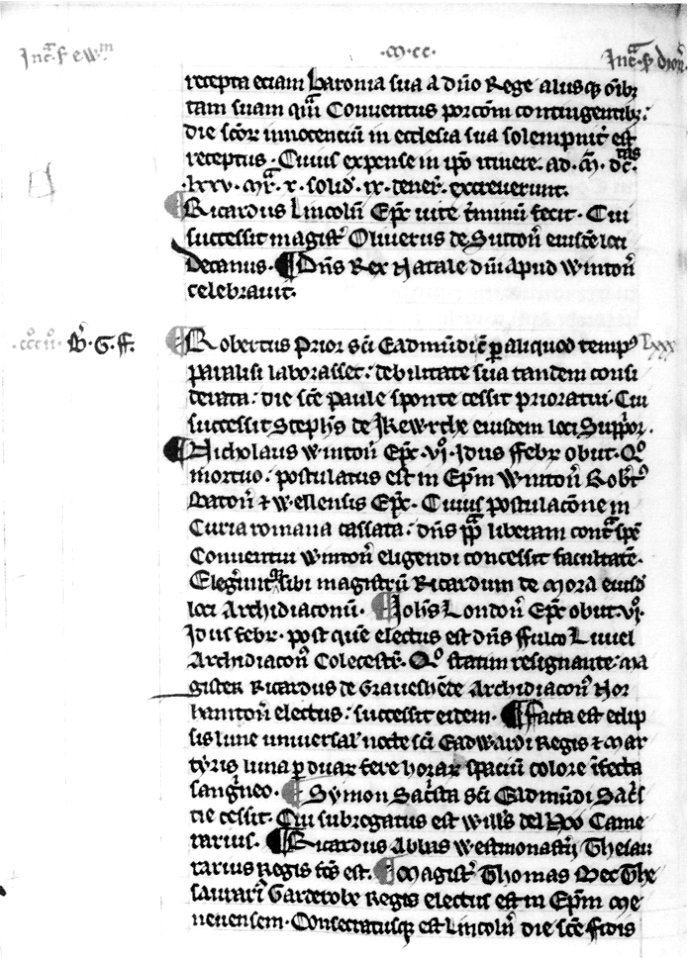 .M.CC.
recepta eciam Baronia sua a dno Rege aliisque oibz
tam suam qua Conventus porcoem contingentibz:
die scor innocentiu in ecclesia sua solempnit est
receptus. Cuius expense in ipo itinere. ad. M. dc.
lxxv. mr. x. solid. ix. dener. excreverunt.
Ricardus Lincoln Epc vite tminu fecit. Cui
successit magist Oliverus de Sutton eiusde loci
Decanus. Dns Rex Natale dni apud Winton
celebravit.
B. G. ff.
Robertus Prior sci Eadmudi cu p aliquod temp9
paralisi laborasset: debilitate sua tandem consi
derata: die sce Paule sponte cessit prioratui. Cui
successit Stephs de Ikewrthe eiusdem loci Supp'or.
Nicholaus Winton Epc. vi. Idus ffebr obiit. Qo
mortuo: postulatus est in Epm Winton Robt9
Baton & Wellensis Epc. Cuius postulacone in
Curia romana cassata: dns pp liberam cont spe
Conventui Winton eligendi concessit facultate.
Elegerunt sibi magistru Ricardum de Mora eiusd
loci Archidiaconu. Johs London Epc obiit. vi.
Idus febr. post que electus est dns ffulco Luvel
Archidiacon Colecestr. Qo statim resignante: ma
gister Ricardus de Graveshede Archidiacon Nor
hamton electus: successit eidem. Facta est eclip
sis lune universal' nocte sci Eadwardi Regis & Mar
tyris luna p duar fere horar spaciu colore ifecta
sangineo. Symon Sacsta sci Eadmudi Sacs
tie cessit. Cui subrogatus est Wills de Hoo Came
rarius. Ricardus Abbas Westmonastij Thesau
rarius Regis fcs est. Magist Thomas Bec The
saurari9 Garderobe Regis electus est in Epm Me
nevensem. Consecratusque est Lincoln die sce ffidis